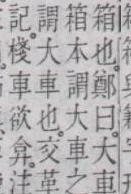 箱也。鄭曰。大車
箱本謂大車之
謂大車也。交革
記。棧車欲弇。注